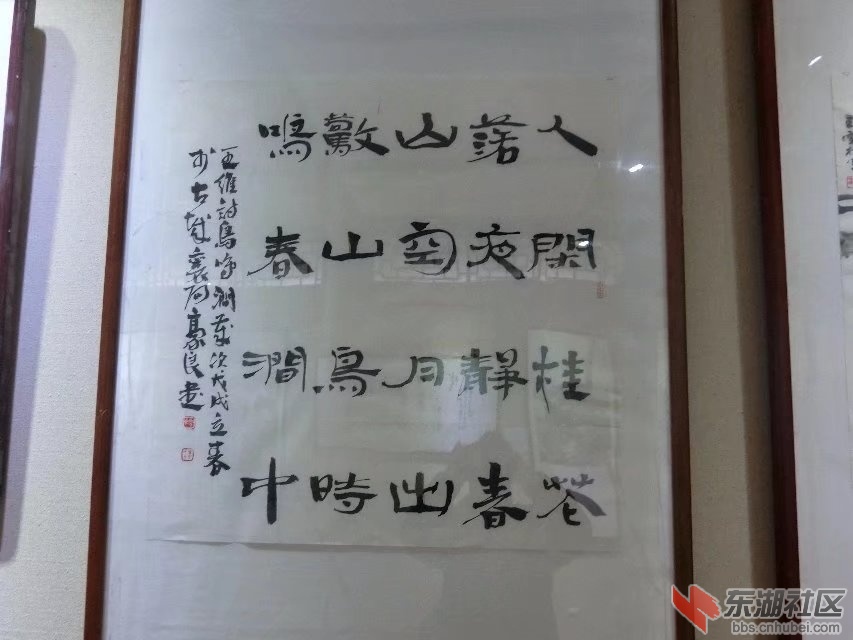 人閑桂花
落夜靜春
山空月出
驚山鳥時
鳴春澗中
王維詩鳥鳴澗歲次戊戌立春
於古城襄陽豪良書
东湖社区
bbs.cnhubei.com